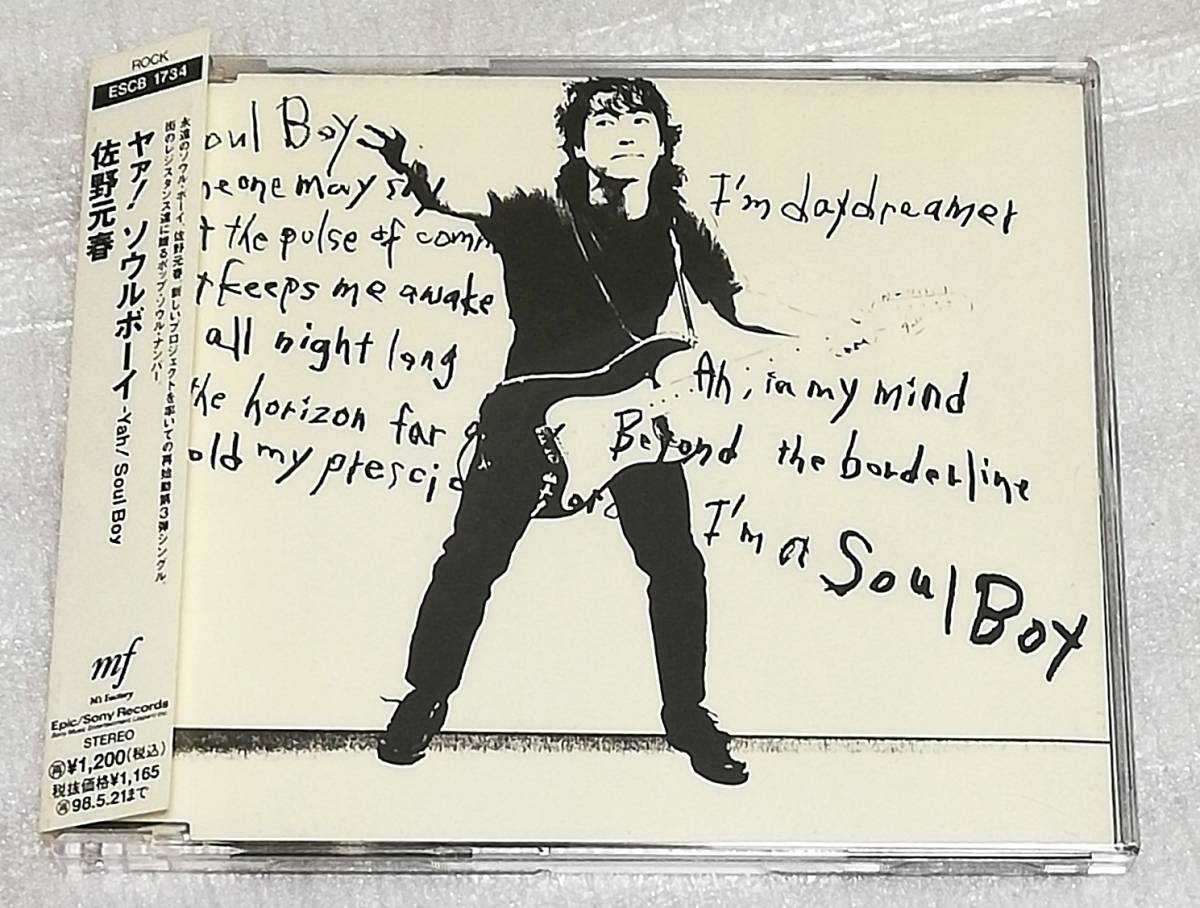 ROCK
ESCB 1734
永遠のソウル・ボーイ、佐野元春、新しいプロジェクトを率いての再始動第3弾シングル。
街のレジスタンス達に贈るポップ・ソウル・ナンバー
ヤァ! ソウルボーイ -Yah! Soul Boy
佐野元春
mf
M's Factory
Epic/Sony Records
Sony Music Entertainment (Japan) Inc.
STEREO
再¥1,200(税込)
税抜価格¥1,165
再98.5.21まで
oul Boy
eone may say
t the pulse of comm
t keeps me awake
all night long
the horizon far a
old my prescic
ord
I'm daydreamer
Ah, in my mind
Beyond the borderline
I'm a Soul Boy